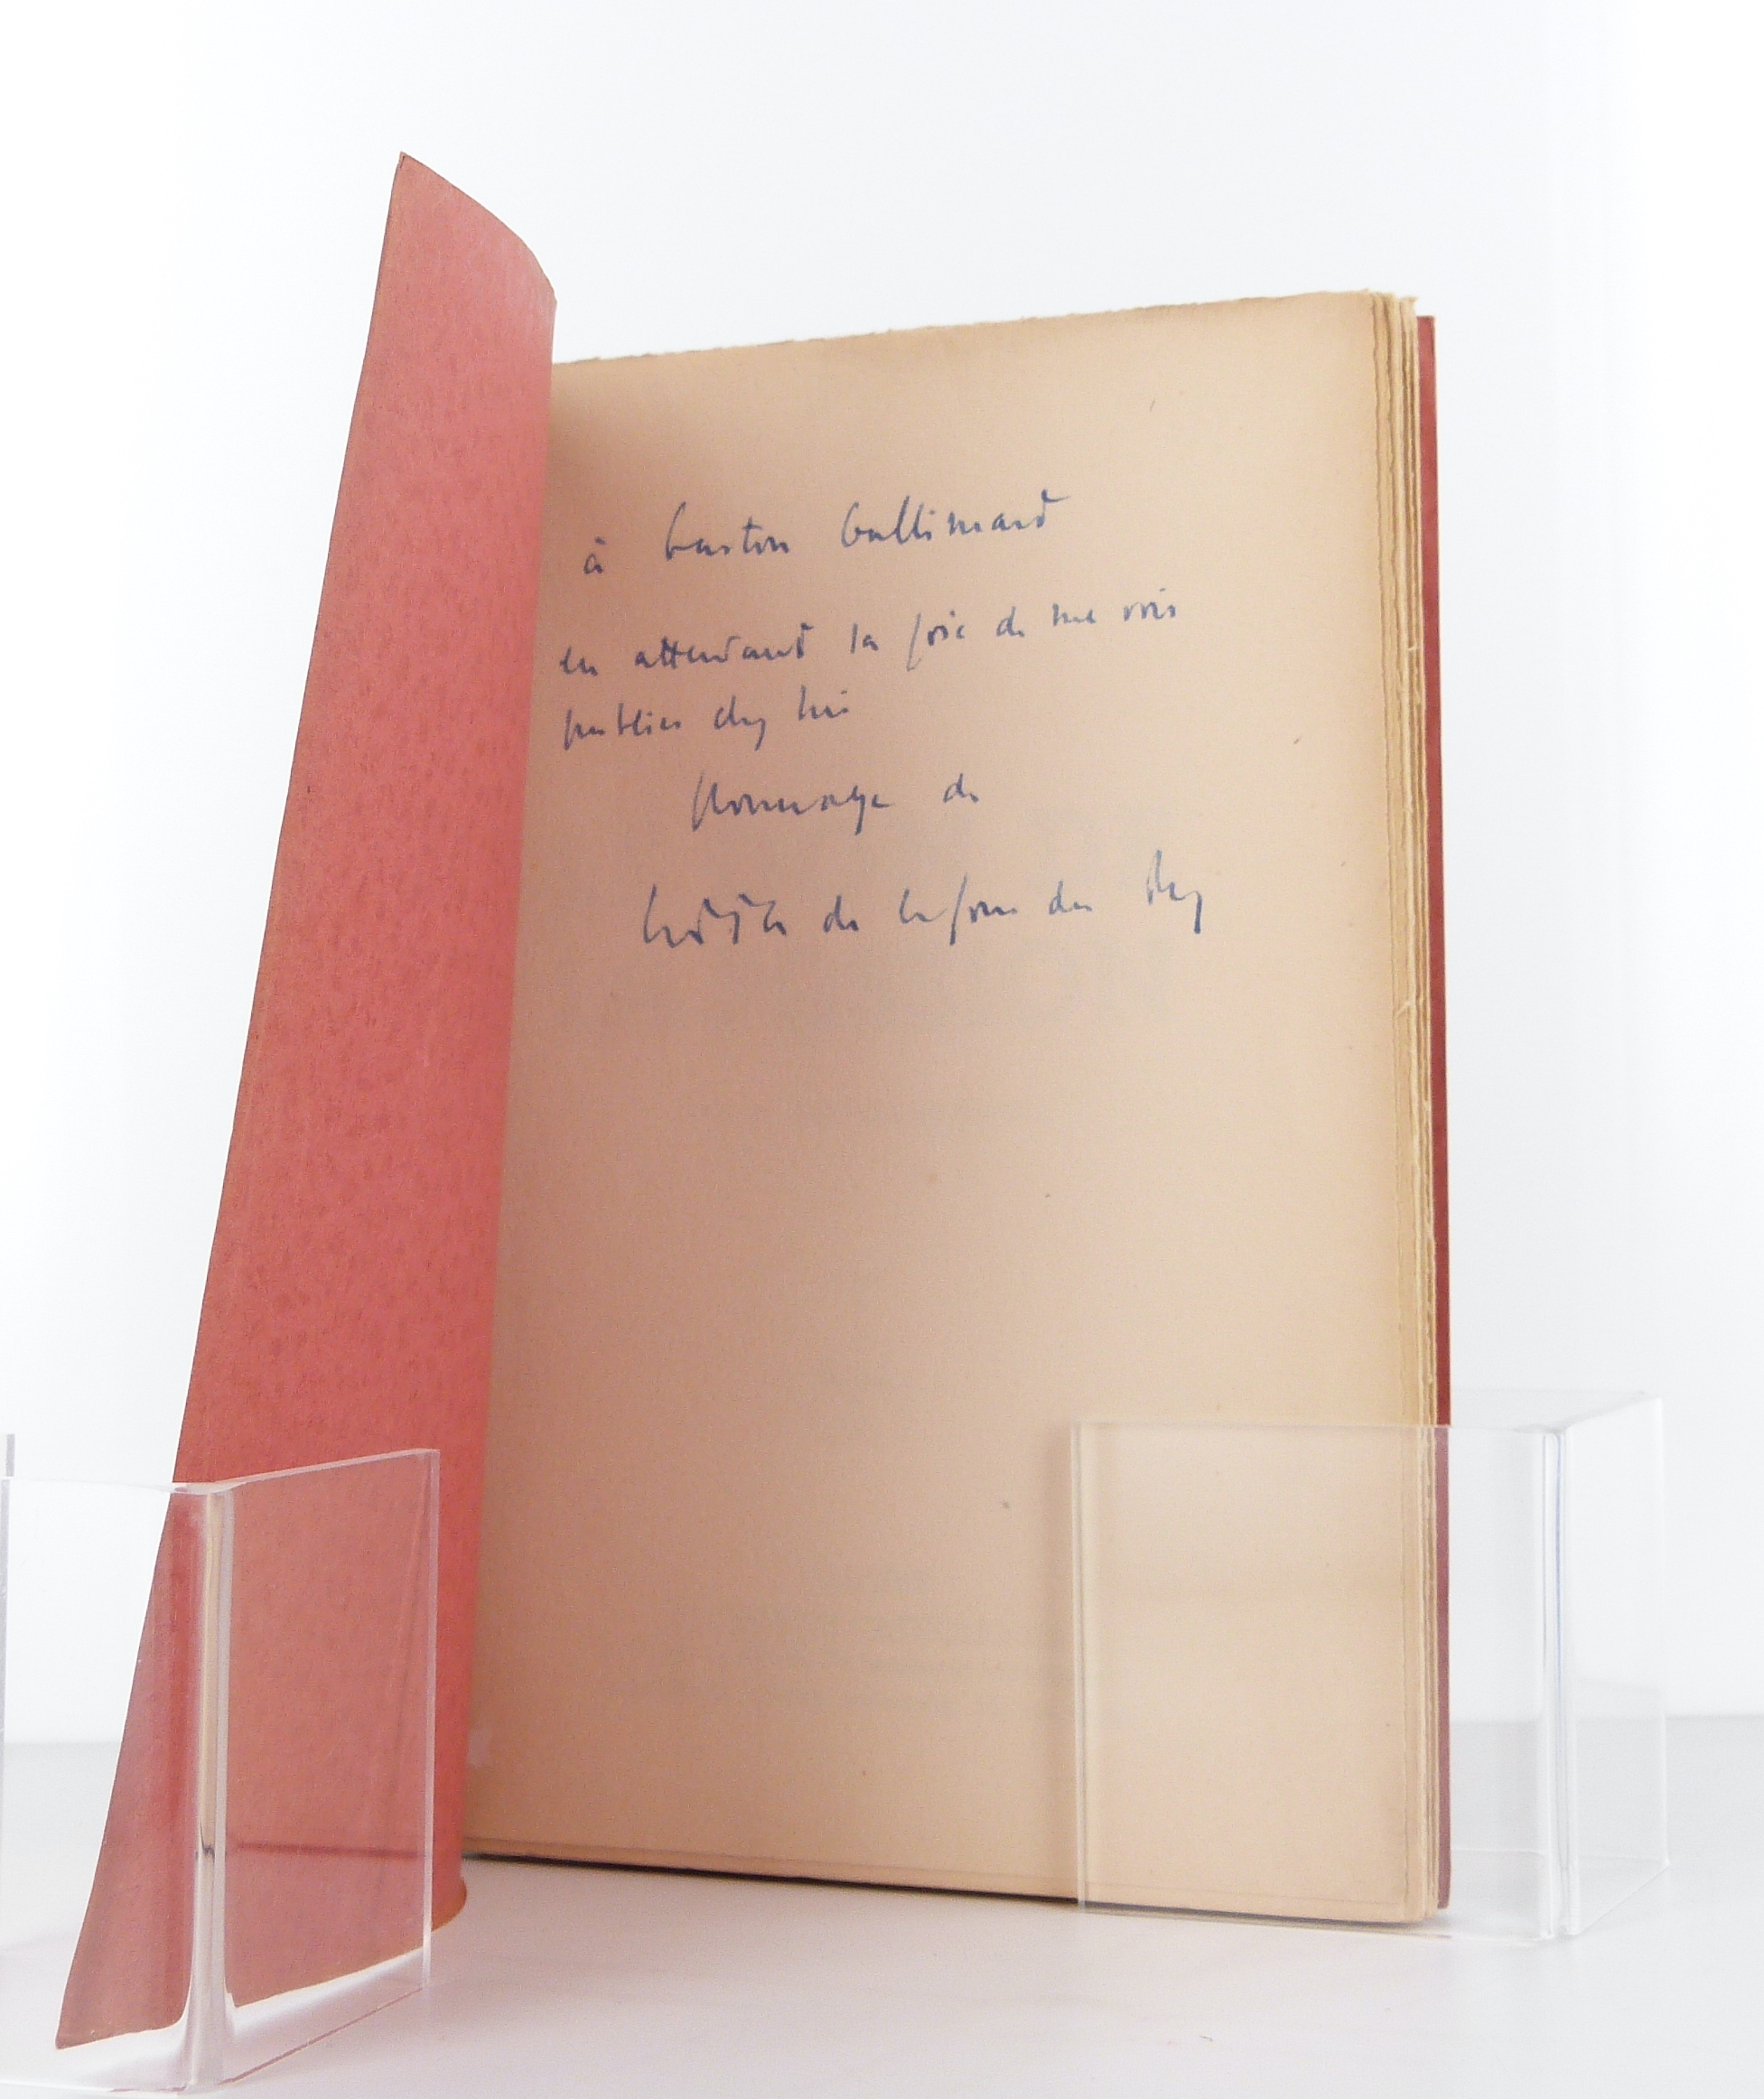 à Gaston Gallimard
en attendant la joie de me voir
publier chez lui
Hommage de
de la